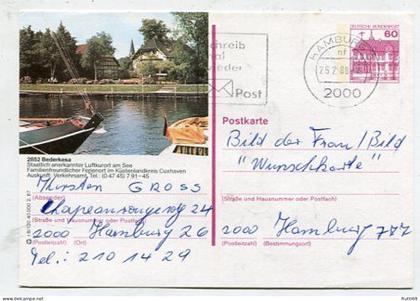 DEUTSCHE BUNDESPOST
60
HAMBURG
2000
Schreib
mal
wieder
Post
2852 Bederkesa
Staatlich anerkannter Luftkurort am See
Familienfreundlicher Ferienort im Küstenlandkreis Cuxhaven
Auskunft: Verkehrsamt, Tel.: (0 47 45) 7 91-45
Postkarte
Bild der Frau/Bild
"Wunschkarte"
(Straße und Hausnummer oder Postfach)
2000 Hamburg 777
(Postleitzahl) (Bestimmungsort)
Thorsten GROSS
(Absender)
24
(Straße und Hausnummer oder Postfach)
2000 Hamburg 26
(Postleitzahl) (Ort)
Tel.: 210 14 29